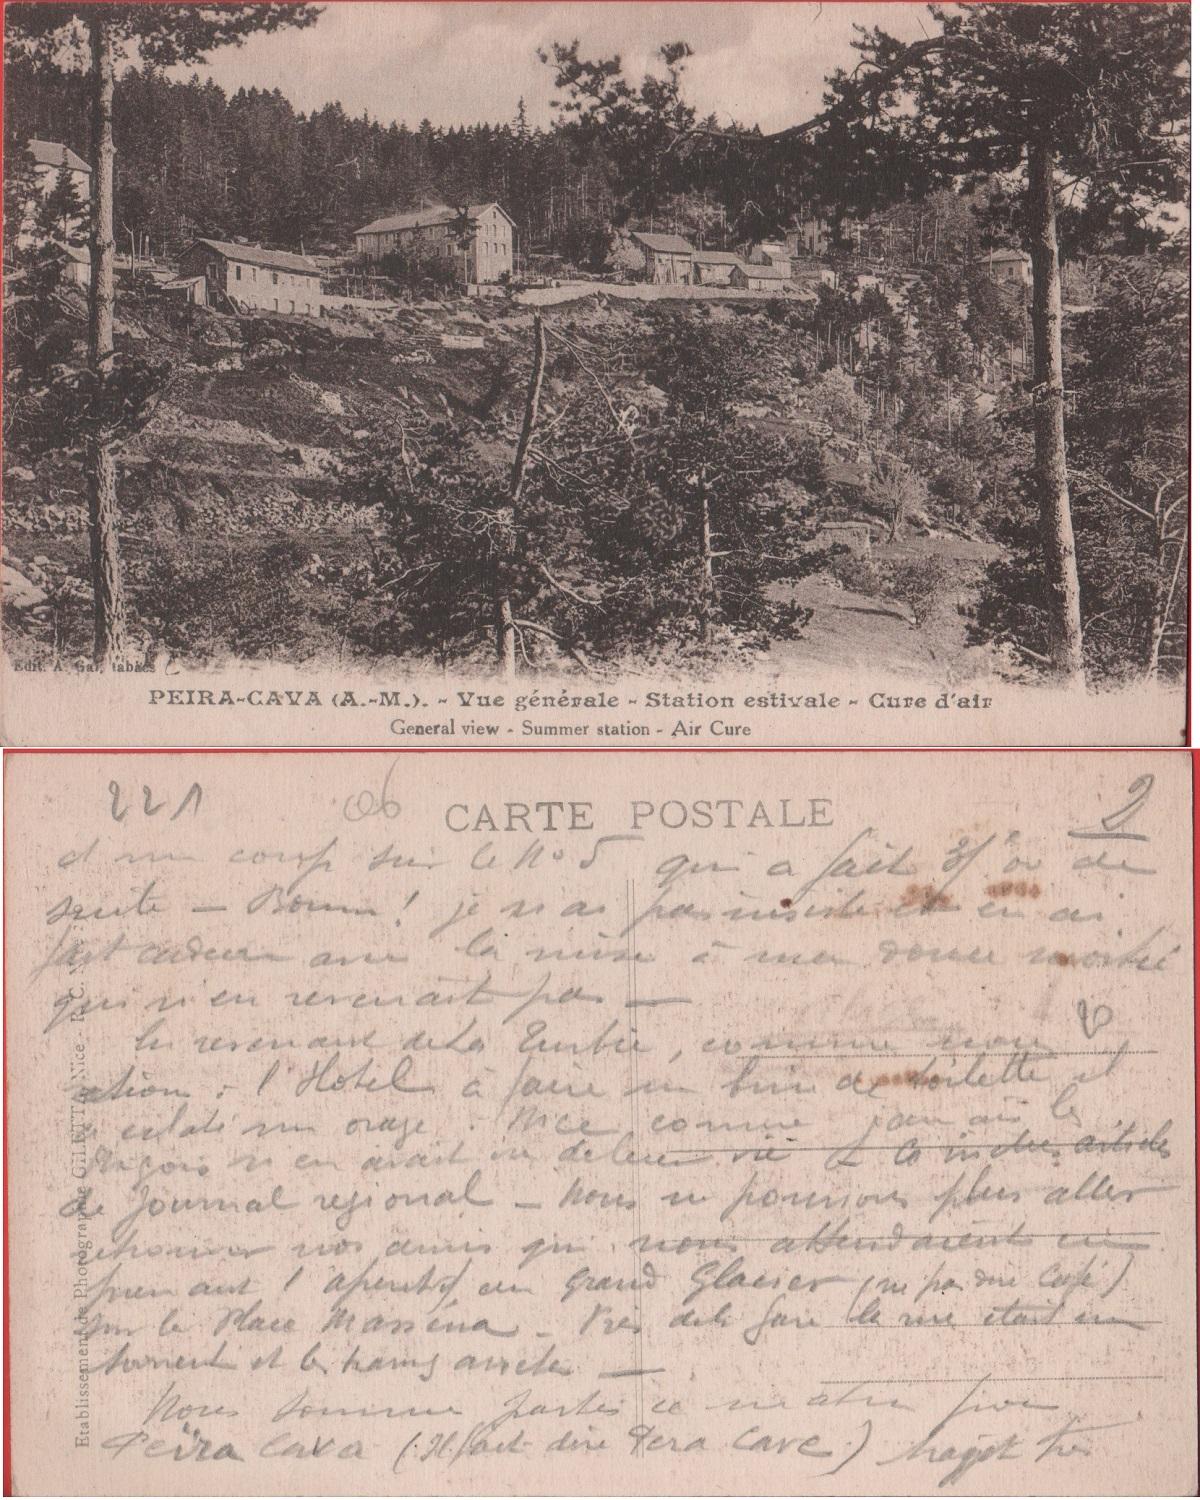 Edit. A. Gal, tabacs
PEIRA-CAVA (A.-M.). - Vue générale - Station estivale - Cure d'air
General view - Summer station - Air Cure
221
06
CARTE POSTALE
2
et un coup sur le No 5 qui a fait de
suite — Boum! je n'ai pas insisté et en ai
fait cadeau avec la mise à ma douce moitié
qui n'en revenait pas —
En revenant de La Turbie, comme nous
étions à l'Hotel à faire un brin de toilette il
a éclaté un orage. Nice comme jamais les
Niçois n'en avait vu de leur vie
de journal régional — Nous ne pouvions plus aller
retrouver nos amis qui nous attendaient en
prenant l'apéritif au Grand Glacier (ne pas dire Café)
sur la Place Masséna — Près de la gare la rue était un
torrent et les trams arretés —
Nous sommes partis ce matin pour
Peïra Cava (Il faut dire Pera Cave) trajet très
Etablissement de Photographie GILETTA, Nice R. C. N